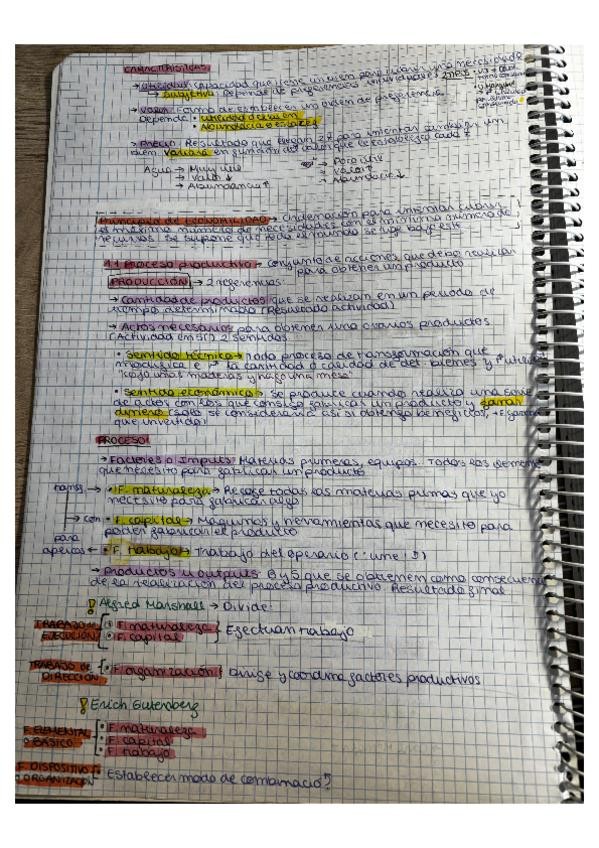 CARACTERÍSTICAS
→ Utilidad: capacidad que tiene un bien para cubrir una necesidad
→ Subjetiva. Depende de preferencias individuales
→ Valor: Forma de establecer un orden de preferencia.
Depende: • Utilidad del bien
• Abundancia o escasez
→ Precio: Resultado que llegan 2 para intentar
bien. Variará en función del valor que le establezca cada
Agua → Muy útil → Poco útil
→ Valor ↓ → Valor ↑
→ Abundancia ↑ → Abundancia ↓
Principio de ECONOMICIDAD → Ordenación para intentar cubrir
el máximo número de necesidades con el mínimo número de
recursos. Se supone que todo el mundo se rige bajo este
1.1 Proceso productivo → Conjunto de acciones que debo realizar
para obtener un producto
PRODUCCIÓN → 2 referencias:
→ Cantidad de productos que se realizan en un periodo de
tiempo determinado (Resultado actividad)
→ Actos necesarios para obtener uno o varios productos
(Actividad en sí) 2 sentidos:
• Sentido técnico → Todo proceso de transformación que
modifica e ↑ la cantidad o calidad de det bienes y ↑
"Cojo unas maderas y hago una mesa"
• Sentido económico → Se produce cuando realizo una serie
de actos con los que consigo fabricar un producto y ganar
dinero (solo se consideraría así si obtengo beneficios,
que invertido)
PROCESO:
→ Factores o Inputs: Materias primeras, equipos... Todos los
que necesito para fabricar un producto
→ • F. naturaleza → Recoge todas las materias primas que yo
necesito para fabricar algo
→ con • F. capital → Máquinas y herramientas que necesito para
poder fabricar el producto
para
← • F. trabajo → Trabajo del operario
→ Productos u outputs: B y S que se obtienen como
de la realización del proceso productivo. Resultado final
! Alfred Marshall → Divide:
TRABAJO DE EJECUCIÓN • F. naturaleza
• F. capital Ejecutan trabajo
TRABAJO DE DIRECCIÓN • F. organización Dirige y coordina factores productivos
! Erich Gutenberg
F. ELEMENTAL O BÁSICO • F. naturaleza
• F. capital
• F. trabajo
F. DISPOSITIVO F. O ORGANIZACIÓN Establecen modo de combinació